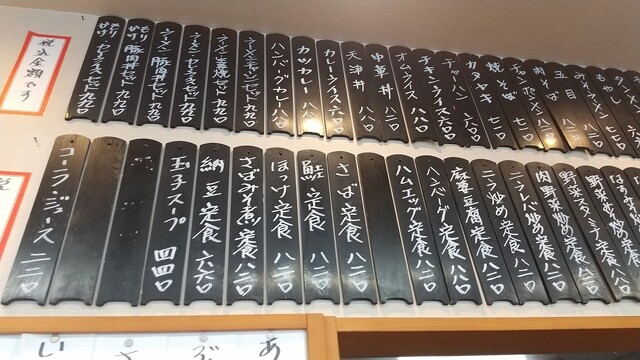 税込金額です
もりかり ヤキニクセット 九九〇
もりかり 豚肉丼セット 九九〇
ラーメン 豚肉丼セット 九九〇
ラーメン ヤキニクセット 九九〇
ラーメン 生姜焼セット 九九〇
ラーメン チャーハンセット 九九〇
ハンバーグカレー 八八〇
カツカレー 八八〇
カレーライス 六六〇
天津丼 八二〇
中華丼 八二〇
オムライス 八八〇
チキンライス 六六〇
チャーハン 六六〇
カタヤキ 七七〇
焼そば 七七〇
チャーシューメン 八八〇
肉そば 八二〇
五目 八二〇
みそラーメン
もやし
コーラ・ジュース 二二〇
玉子スープ 四四〇
納豆定食 六六〇
さばみそ煮定食 八二〇
ほっけ定食 八二〇
鮭定食 八二〇
さば定食 八二〇
ハムエッグ定食 八二〇
ハンバーグ定食 八八〇
麻婆豆腐定食 八二〇
ニラ炒め定食 八二〇
ニラレバ炒め定食 八二〇
肉野菜炒め定食 八二〇
野菜スタミナ定食 八二〇
野菜炒め定食
い
さ
ぶ
あ